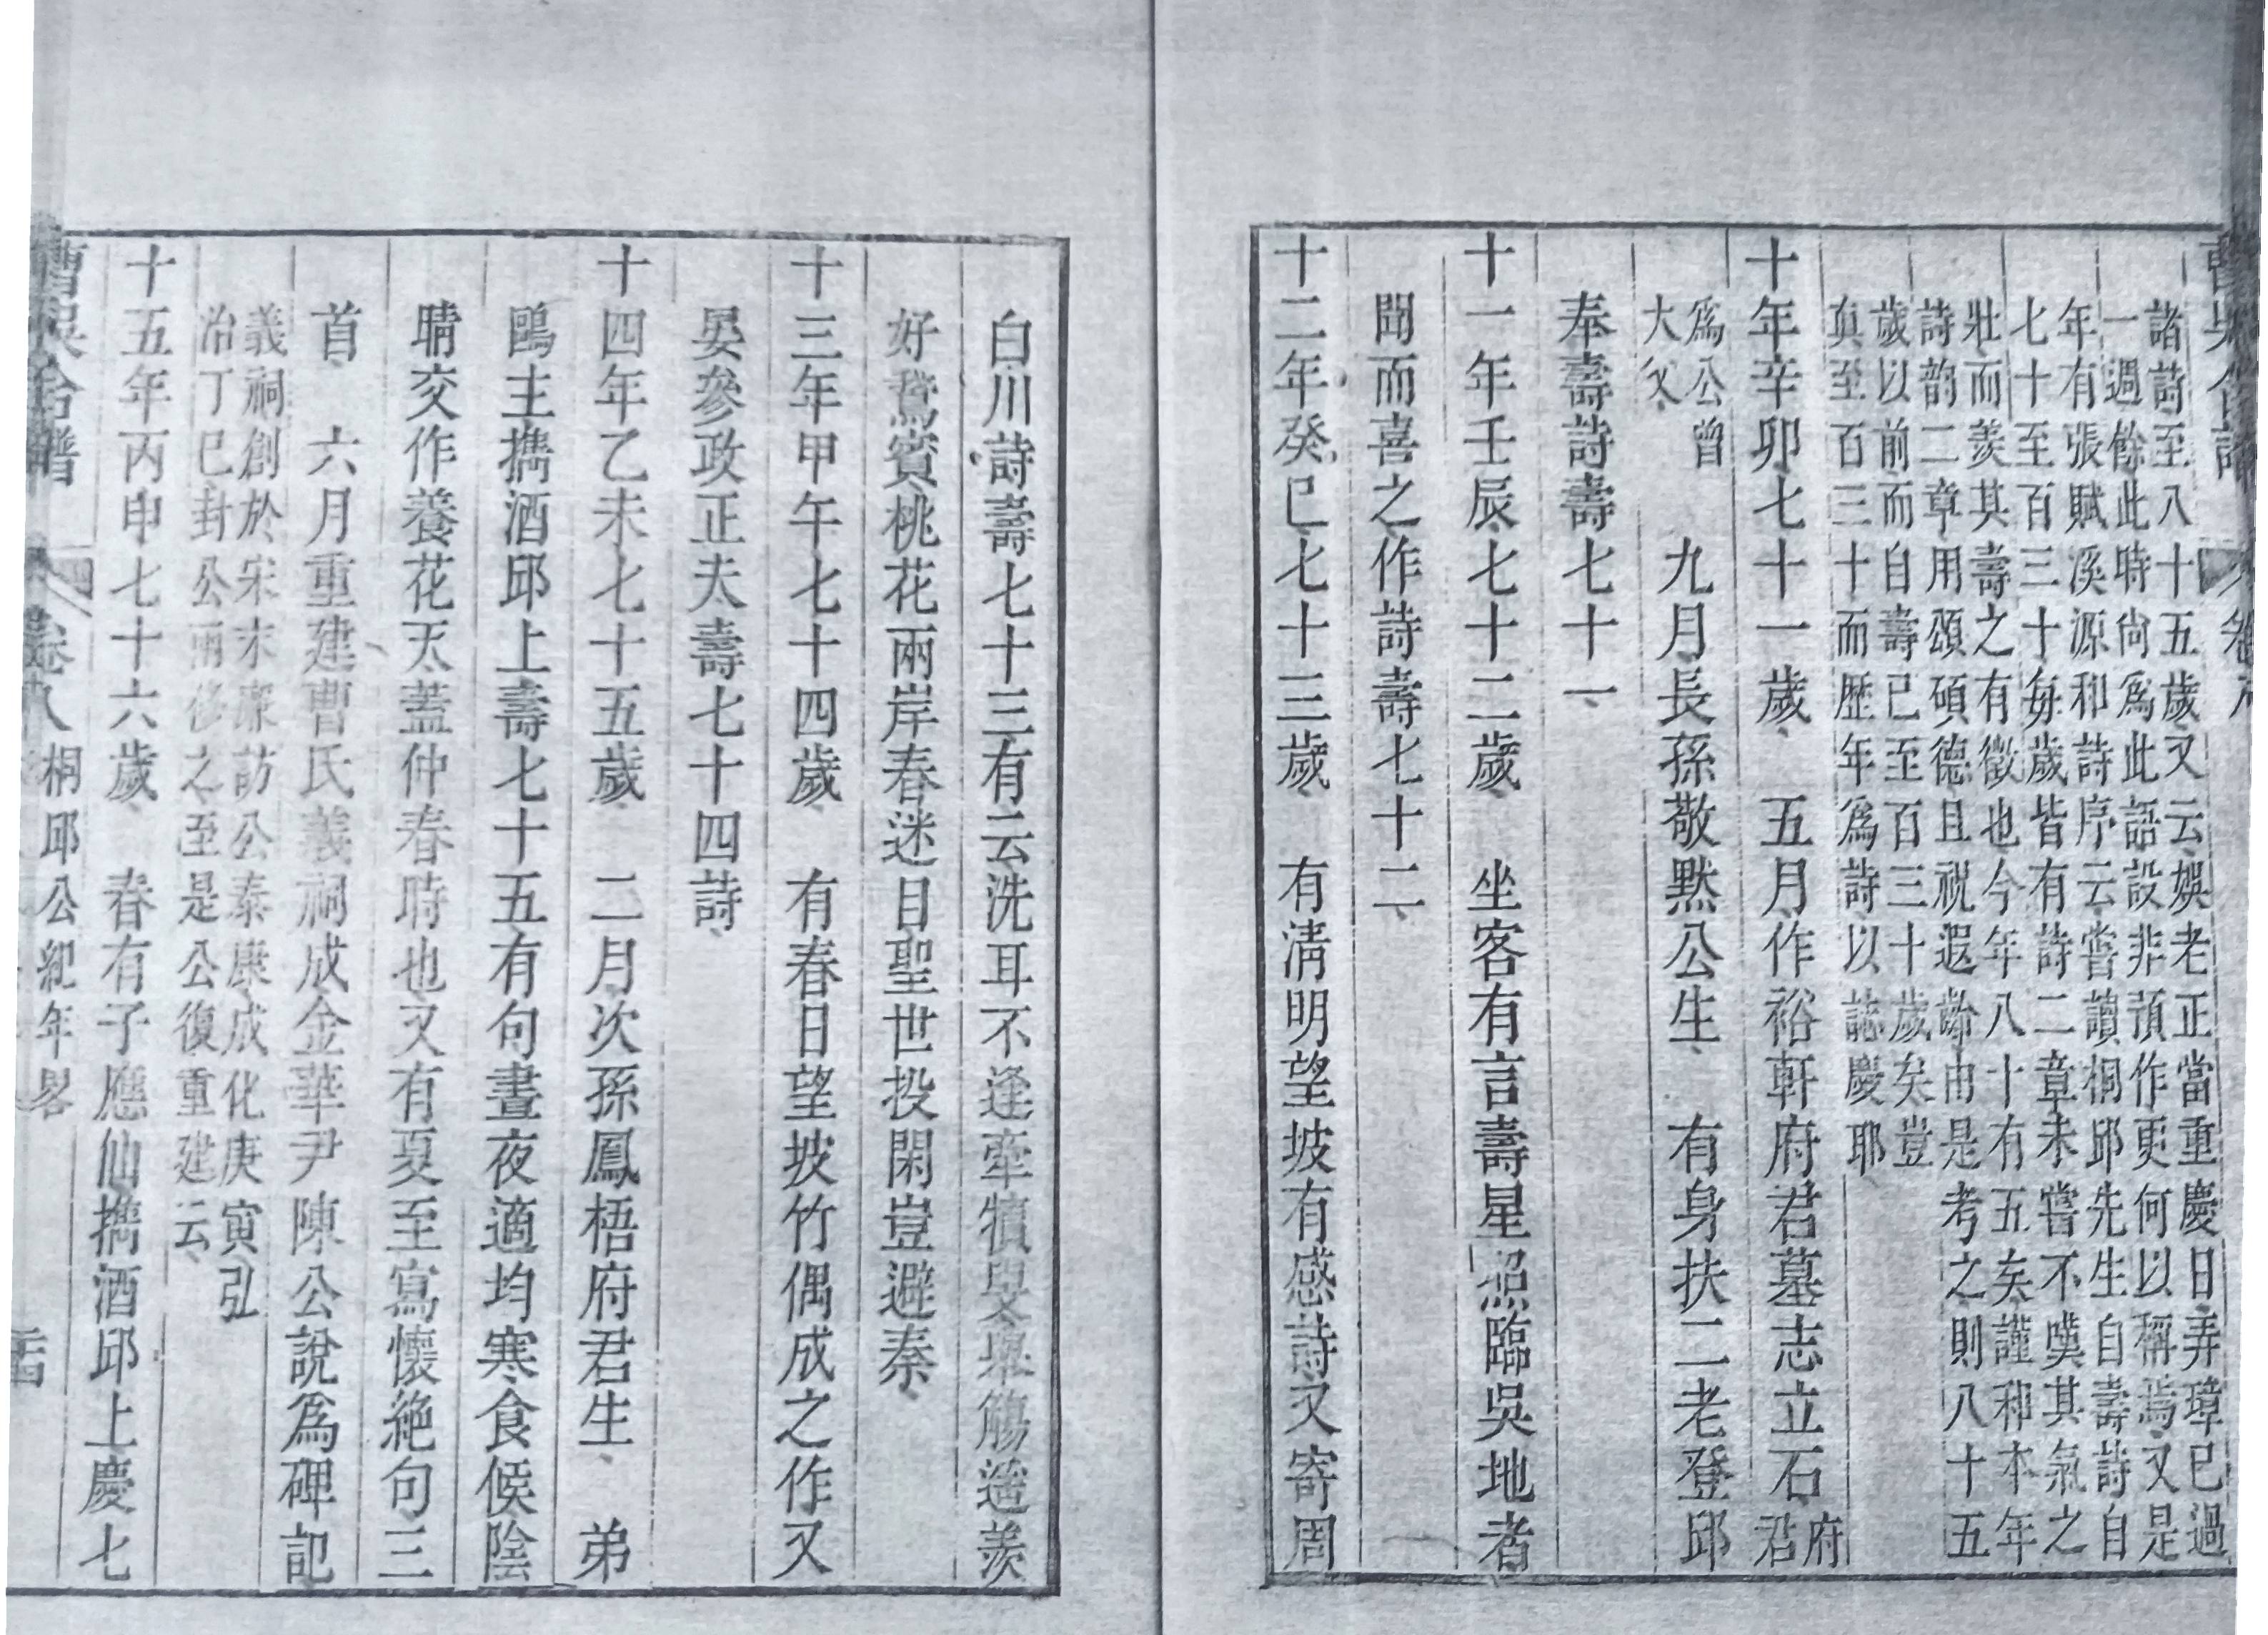 諸詩至八十五歲又云娛老正當重慶日弄璋已過
一週餘此時尚爲此語設非預作更何以稱焉又是
年有張賦溪源和詩序云嘗讀桐邱先生自壽詩自
七十至百三十每歲皆有詩二章未嘗不嘆其氣之
壯而羨其壽之有徵也今年八十有五矣謹和本年
詩韵二章用頌碩德且祝遐齡由是考之則八十五
歲以前而自壽已至百三十歲矣豈
真至百三十而歴年爲詩以誌慶耶
十年辛卯七十一歲　五月作裕軒府君墓志立石府君
爲公曾大父　九月長孫敬默公生　有身扶二老登邱
奉壽詩壽七十一
十一年壬辰七十二歲　坐客有言壽星照臨吳地者
聞而喜之作詩壽七十二
十二年癸巳七十三歲　有淸明望坡有感詩又寄周
白川詩壽七十三有云洗耳不逢牽犢叟舉觴遙羨
好鶩賓桃花兩岸春迷目聖世投閑豈避秦
十三年甲午七十四歲　有春日望坡竹偶成之作又
晏參政正夫壽七十四詩
十四年乙未七十五歲　二月次孫鳳梧府君生　弟
鷗主攜酒邱上壽七十五有句晝夜適均寒食候陰
晴交作養花天蓋仲春時也又有夏至寫懷絶句三
首　六月重建曹氏義祠成金華尹陳公說爲碑記
義祠創於宋末廉訪公泰康成化庚寅弘
治丁巳封公兩修之至是公復重建云
十五年丙申七十六歲　春有子應仙攜酒邱上慶七
曹吳合譜　卷八　桐邱公紀年畧　二十四